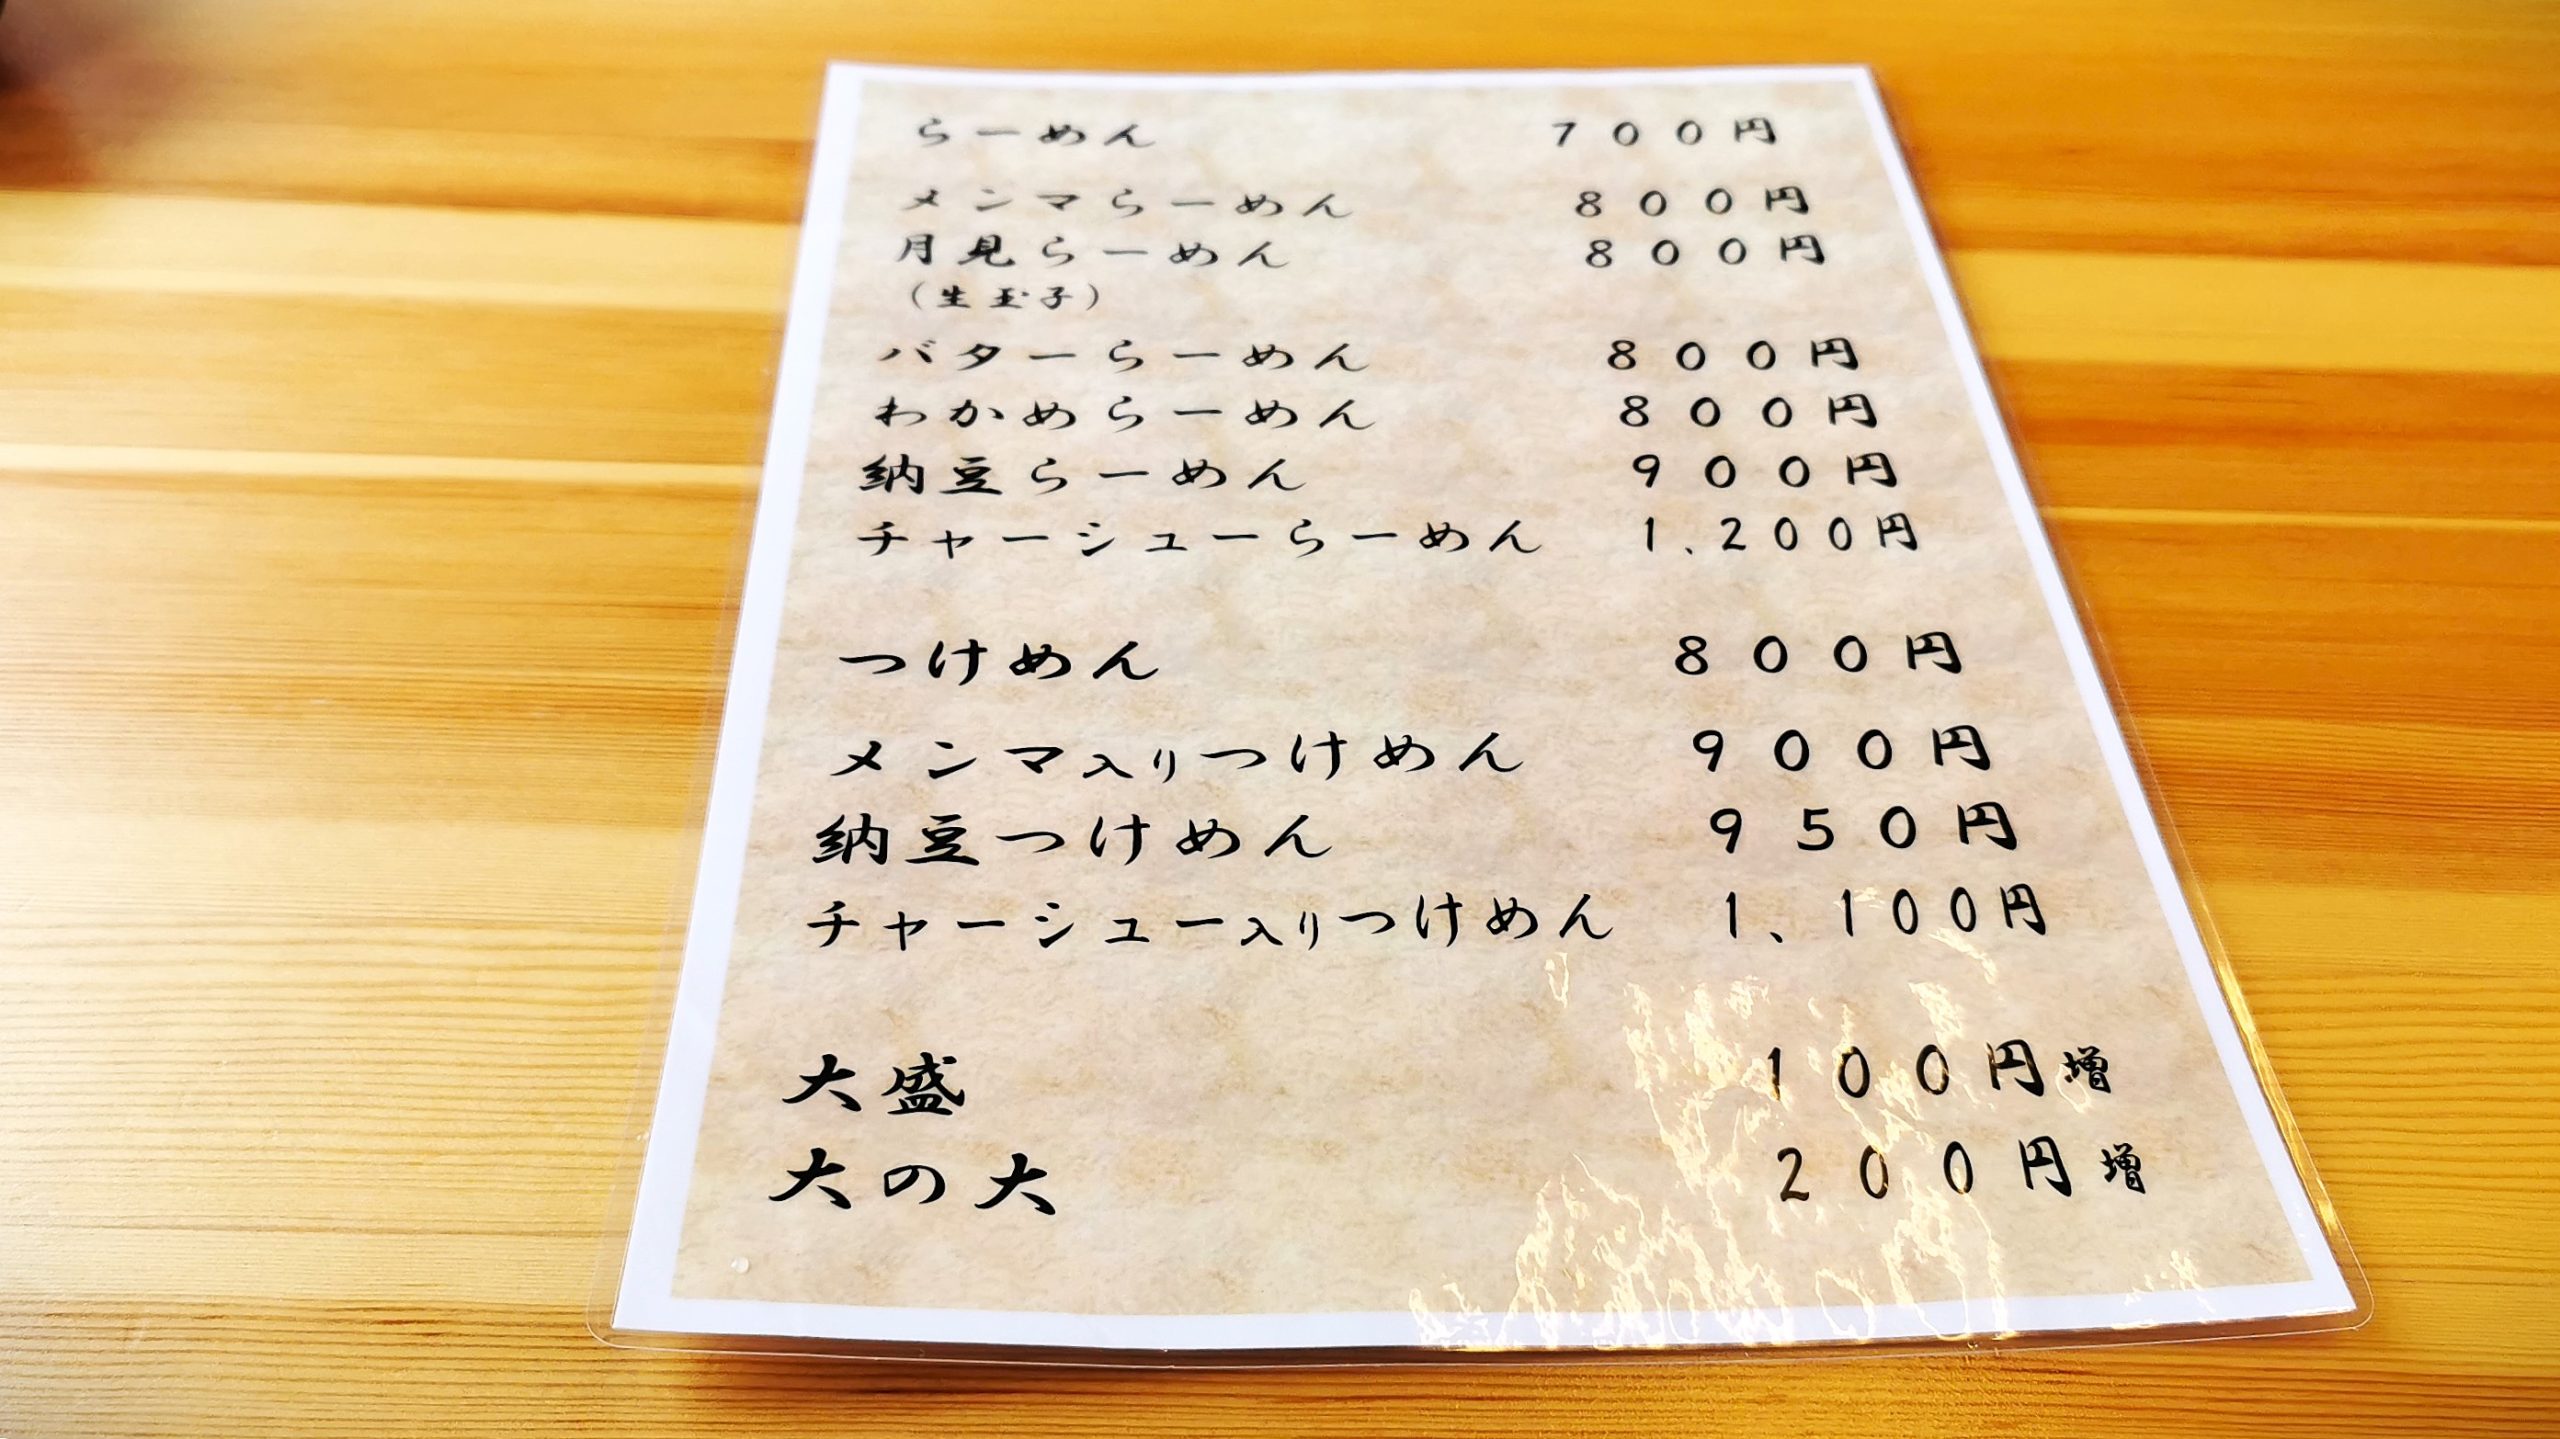 らーめん ７００円
メンマらーめん ８００円
月見らーめん ８００円
（生玉子）
バターらーめん ８００円
わかめらーめん ８００円
納豆らーめん ９００円
チャーシューらーめん １、２００円
つけめん ８００円
メンマ入りつけめん ９００円
納豆つけめん ９５０円
チャーシュー入りつけめん １、１００円
大盛 １００円増
大の大 ２００円増